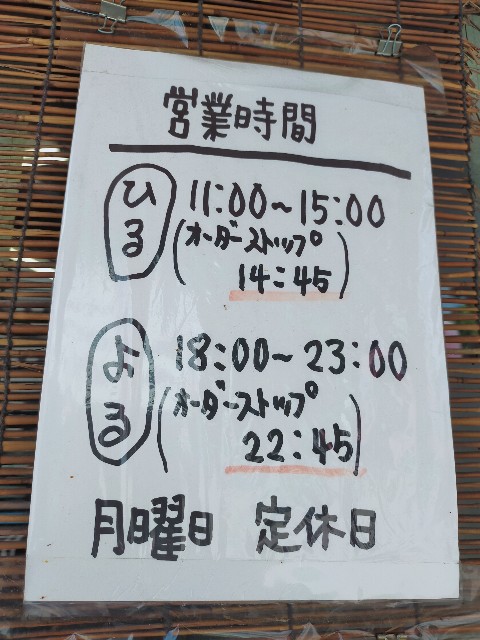 営業時間
ひる 11:00～15:00
(オーダーストップ
14:45)
よる 18:00～23:00
(オーダーストップ
22:45)
月曜日 定休日